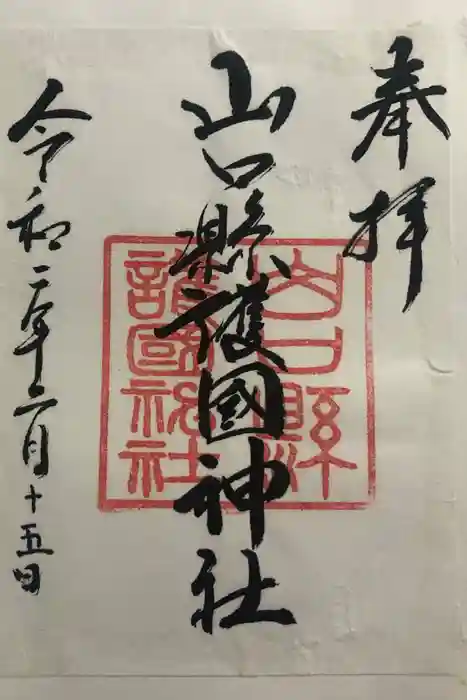 奉拝
山口縣護國神社
山口縣
護國神社
令和二年二月十五日